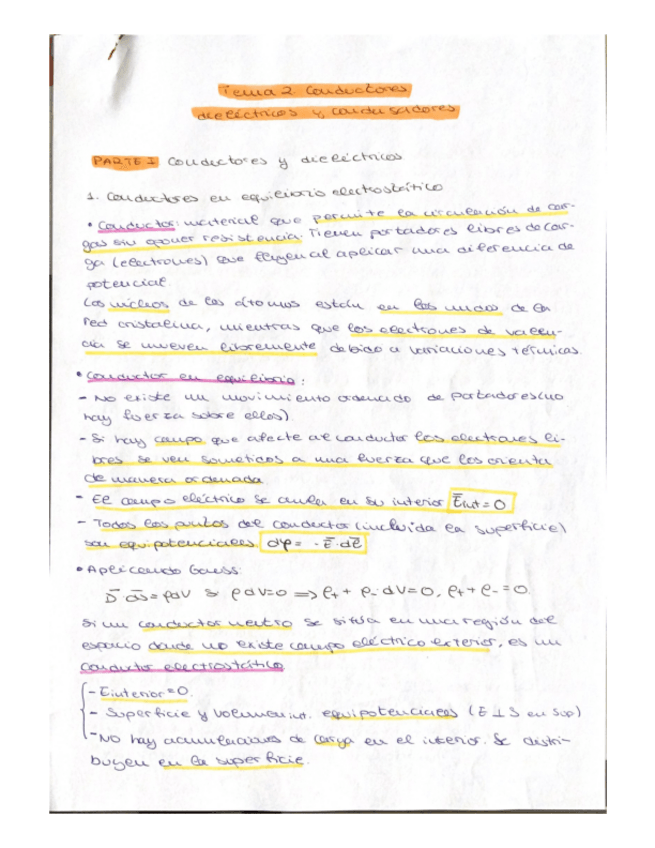 Tema 2. Conductores
dieléctricos y condensadores
PARTE I Conductores y dieléctricos
1. Conductores en equilibrio electrostático
• Conductor: material que permite la circulación de car-
gas sin oponer resistencia. Tienen portadores libres de car-
ga (electrones) que fluyen al aplicar una diferencia de
potencial.
Los núcleos de los átomos están en los nudos de la
red cristalina, mientras que los electrones de valen-
cia se mueven libremente debido a variaciones térmicas.
• Conductor en equilibrio:
- No existe un movimiento ordenado de portadores (no
hay fuerza sobre ellos).
- Si hay campo que afecte al conductor los electrones li-
bres se ven sometidos a una fuerza que los orienta
de manera ordenada.
- El campo eléctrico se anula en su interior E̅int = 0
- Todos los puntos del conductor (incluida la superficie)
son equipotenciales. dφ = - E̅·dl̅
• Aplicando Gauss:
D̅·ds̅ = ρdV ρdV=0 ⇒ ρ+ + ρ- dV=0, ρ+ + ρ- = 0.
Si un conductor neutro se sitúa en una región del
espacio donde no existe campo eléctrico exterior, es un
conductor electrostático
- E̅interior = 0.
- Superficie y volumen int. equipotenciales (E ⊥ S en sup)
- No hay acumulaciones de carga en el interior. Se distri-
buyen en la superficie.